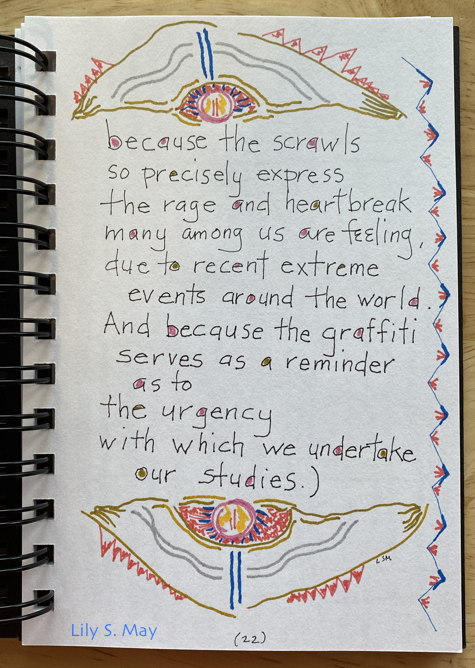 because the scrawls
so precisely express
the rage and heartbreak
many among us are feeling,
due to recent extreme
events around the world.
And because the graffiti
serves as a reminder
as to
the urgency
with which we undertake
our studies.)
LSM
Lily S. May
(22)